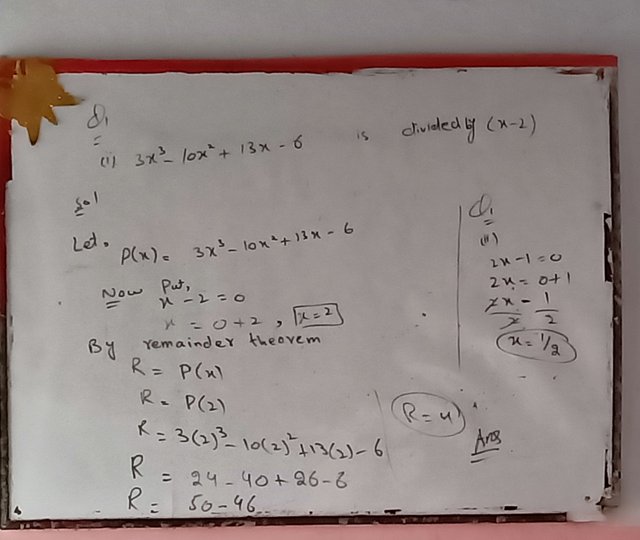 Q1
(i) 3x³ - 10x² + 13x - 6 is divided by (x-2)
Sol
Let. P(x) = 3x³ - 10x² + 13x - 6
Now Put,
x - 2 = 0
x = 0 + 2 , x = 2
By remainder theorem
R = P(x)
R = P(2)
R = 3(2)³ - 10(2)² + 13(2) - 6
R = 24 - 40 + 26 - 6
R = 50 - 46
R = 4
Ans
Q1
(ii)
2x - 1 = 0
2x = 0 + 1
2x/2 = 1/2
x = 1/2